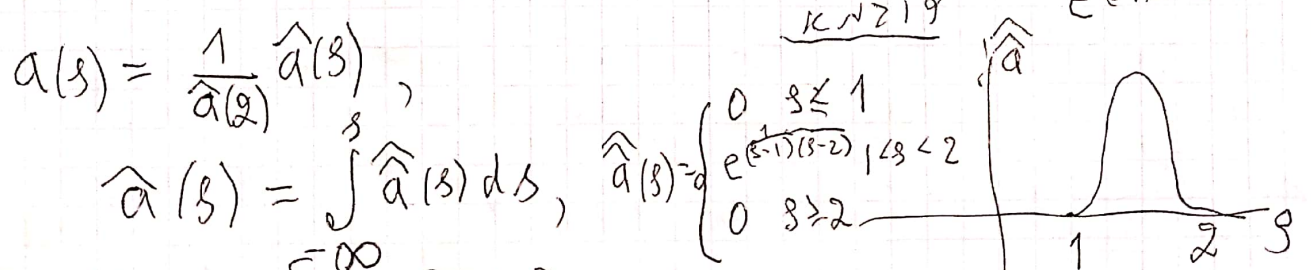 K N219
a(s) = 1/â(2) â(s),
â(s) = ∫_{-∞}^{s} \hat{\hat{a}}(s) ds, \hat{\hat{a}}(s) = { 0 s ≤ 1
e^{1/((s-1)(s-2))}, 1 < s < 2
0 s ≥ 2
\hat{\hat{a}}
1 2 s